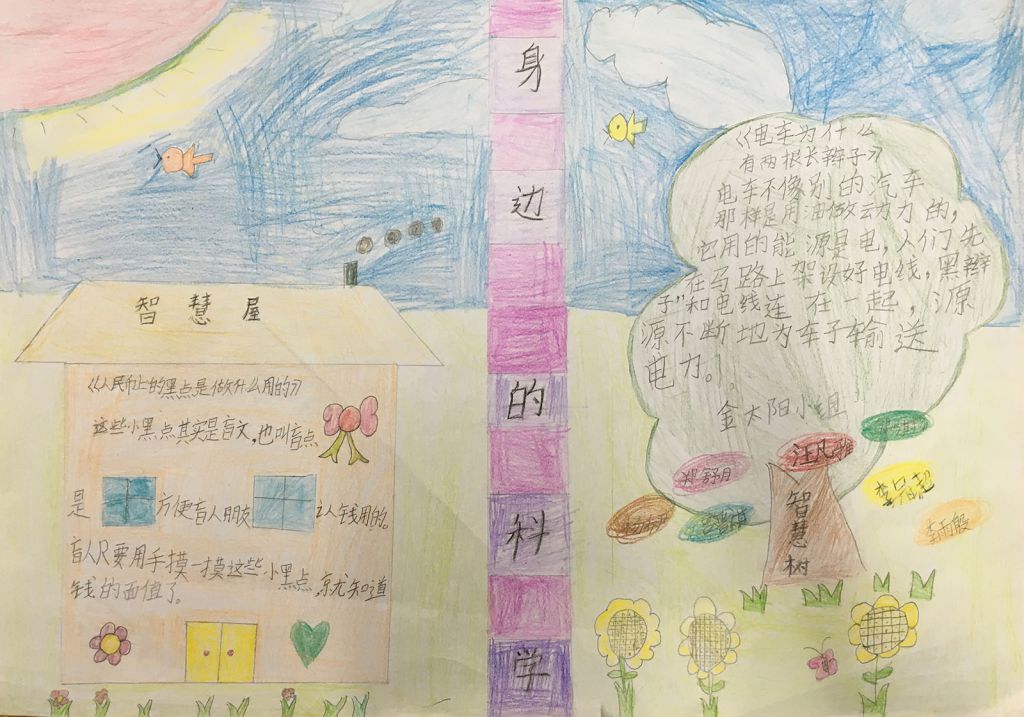 身边的科学
智慧屋
《人民币上的黑点是做什么用的》
这些小黑点其实是盲文,也叫盲点
是 方便盲人朋友 认钱用的。
盲人只要用手摸一摸这些小黑点,就知道
钱的面值了。
《电车为什么
有两根长辫子》
电车不像别的汽车
那样是用油做动力的,
它用的能源是电,人们先
在马路上架设好电线,黑辫
子"和电线连在一起,源
源不断地为车子输送
电力。
金太阳小组
郑舒月
李雨般
智慧树